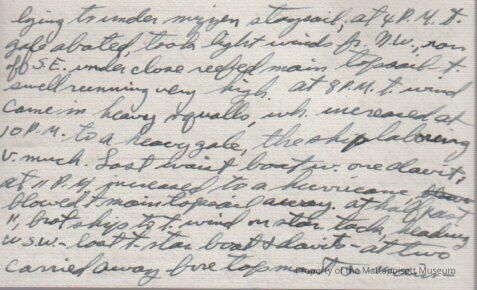 lying to under mizzen staysail; at 4 P.M. t.
gale abated, took light winds fr. N.W., run
off S.E. under close reefed main topsail t.
swell running very high. at 8 P.M. t. wind
came in heavy squalls, wh. increased at
10 P.M. to a heavy gale, the ship laboring
v. much. Lost waist boat w. one davit;
at 11 P.M. increased to a hurricane
blowed t main topsail away. at half past
11, brot ship to t. wind on star tack, heading
W.S.W. - lost t. star boat & davits - at two
carried away fore topmast
Property of the Mattapoisett Museum